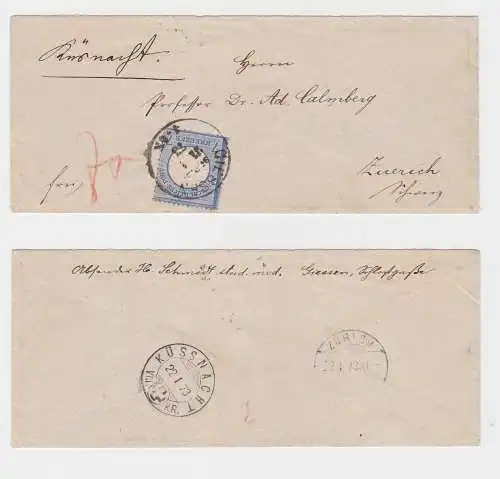 Küsnacht.
Herrn
Professor Dr. Ad. Calmberg
Zuerich
Schweiz
frei
Absender H. Schmidt stud. med. Giessen, Schloßgaße
KÜSSNACHT
22 I 73
ZÜRICH